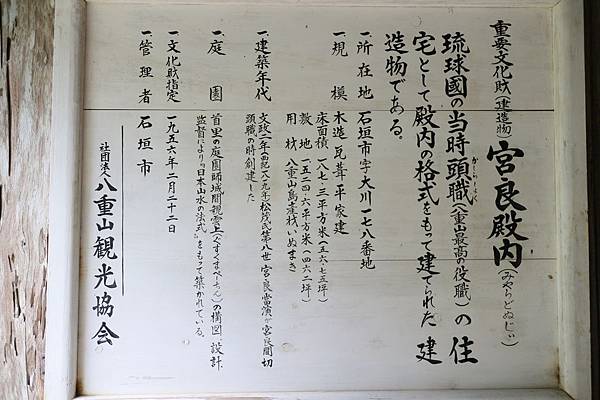 重要文化財 建造物 宮良殿内(みやらどぬじぃ)
琉球國の当時頭職(かしらしょく)(八重山最高の役職)の住
宅として殿内の格式をもって建てられた 建
造物である。
一、所在地 石垣市字大川一七八番地
一、規模 木造瓦葺平家建
床面積 一八七・三平方米(五六・七五坪)
敷地 一五二四・六平方米(四六二坪)
用材 八重山島産材いぬまき
一、建築年代 文政二年(西紀一八一九年)松茂氏第八世 宮良當演が宮良間切
頭職の時創建した
一、庭園 首里の庭園師城間親雲上(ぐすくまぺーちん)の構図、設計、
監督により日本山水の法式をもって築かれている。
一、文化財指定 一九五六年二月二十二日
一、管理者 石垣市
社団法人 八重山観光協会